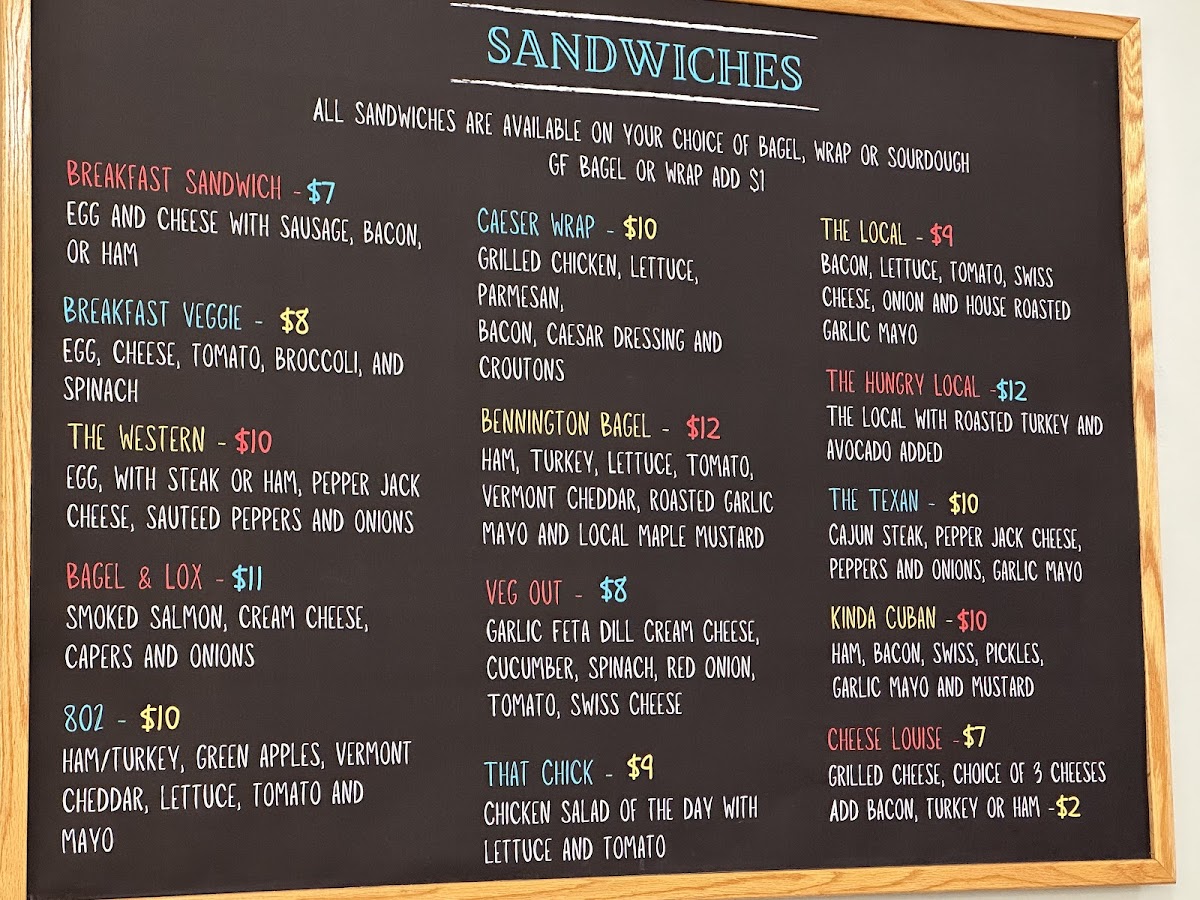 SANDWICHES
ALL SANDWICHES ARE AVAILABLE ON YOUR CHOICE OF BAGEL, WRAP OR SOURDOUGH
GF BAGEL OR WRAP ADD $1
BREAKFAST SANDWICH - $7
EGG AND CHEESE WITH SAUSAGE, BACON,
OR HAM
BREAKFAST VEGGIE - $8
EGG, CHEESE, TOMATO, BROCCOLI, AND
SPINACH
THE WESTERN - $10
EGG, WITH STEAK OR HAM, PEPPER JACK
CHEESE, SAUTEED PEPPERS AND ONIONS
BAGEL & LOX - $11
SMOKED SALMON, CREAM CHEESE,
CAPERS AND ONIONS
802 - $10
HAM/TURKEY, GREEN APPLES, VERMONT
CHEDDAR, LETTUCE, TOMATO AND
MAYO
CAESER WRAP - $10
GRILLED CHICKEN, LETTUCE,
PARMESAN,
BACON, CAESAR DRESSING AND
CROUTONS
BENNINGTON BAGEL - $12
HAM, TURKEY, LETTUCE, TOMATO,
VERMONT CHEDDAR, ROASTED GARLIC
MAYO AND LOCAL MAPLE MUSTARD
VEG OUT - $8
GARLIC FETA DILL CREAM CHEESE,
CUCUMBER, SPINACH, RED ONION,
TOMATO, SWISS CHEESE
THAT CHICK - $9
CHICKEN SALAD OF THE DAY WITH
LETTUCE AND TOMATO
THE LOCAL - $9
BACON, LETTUCE, TOMATO, SWISS
CHEESE, ONION AND HOUSE ROASTED
GARLIC MAYO
THE HUNGRY LOCAL -$12
THE LOCAL WITH ROASTED TURKEY AND
AVOCADO ADDED
THE TEXAN - $10
CAJUN STEAK, PEPPER JACK CHEESE,
PEPPERS AND ONIONS, GARLIC MAYO
KINDA CUBAN -$10
HAM, BACON, SWISS, PICKLES,
GARLIC MAYO AND MUSTARD
CHEESE LOUISE -$7
GRILLED CHEESE, CHOICE OF 3 CHEESES
ADD BACON, TURKEY OR HAM -$2